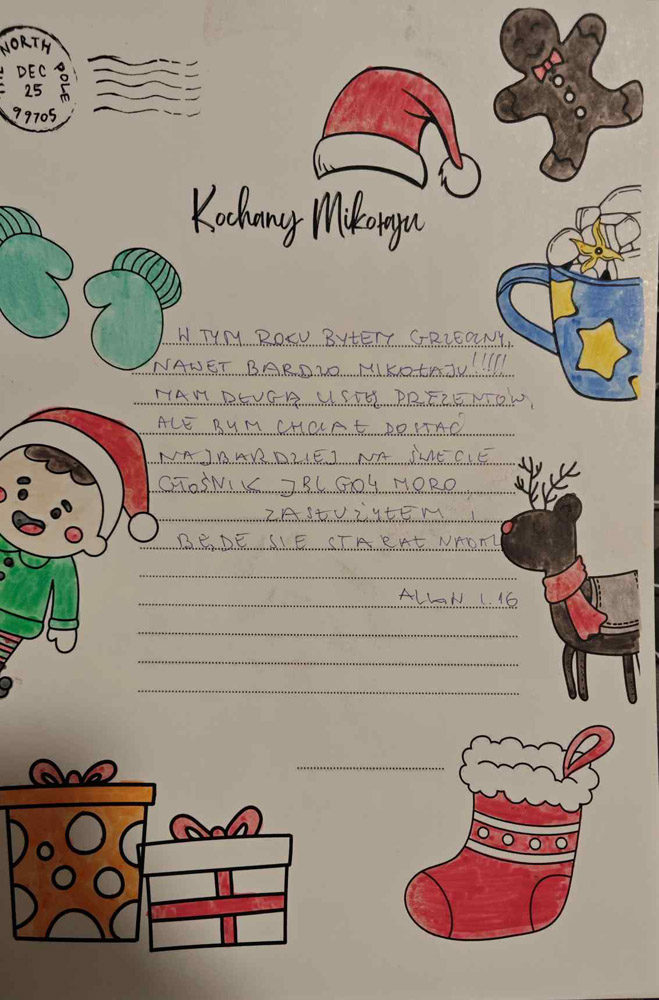 NORTH POLE
DEC
25
99705
Kochany Mikołaju
W TYM ROKU BYŁEM GRZECZNY,
NAWET BARDZO MIKOŁAJU!!!!!
MAM DŁUGĄ LISTĘ PREZENTÓW,
ALE BYM CHCIAŁ DOSTAĆ
NAJBARDZIEJ NA ŚWIECIE
GŁOŚNIK JBL GO4 MORO,
ZASŁUŻYŁEM I
BĘDE SIE STARAŁ NADAL
Allan l.16